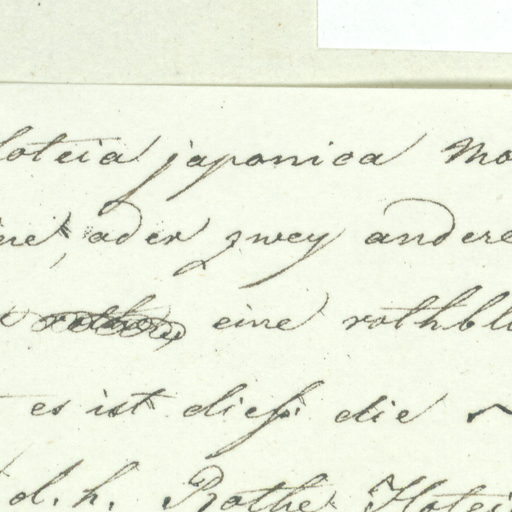 loteia japonica Mo
ine, oder zwey andere
eine rothbl
es ist dieß die
d. h. Rothe Hotei